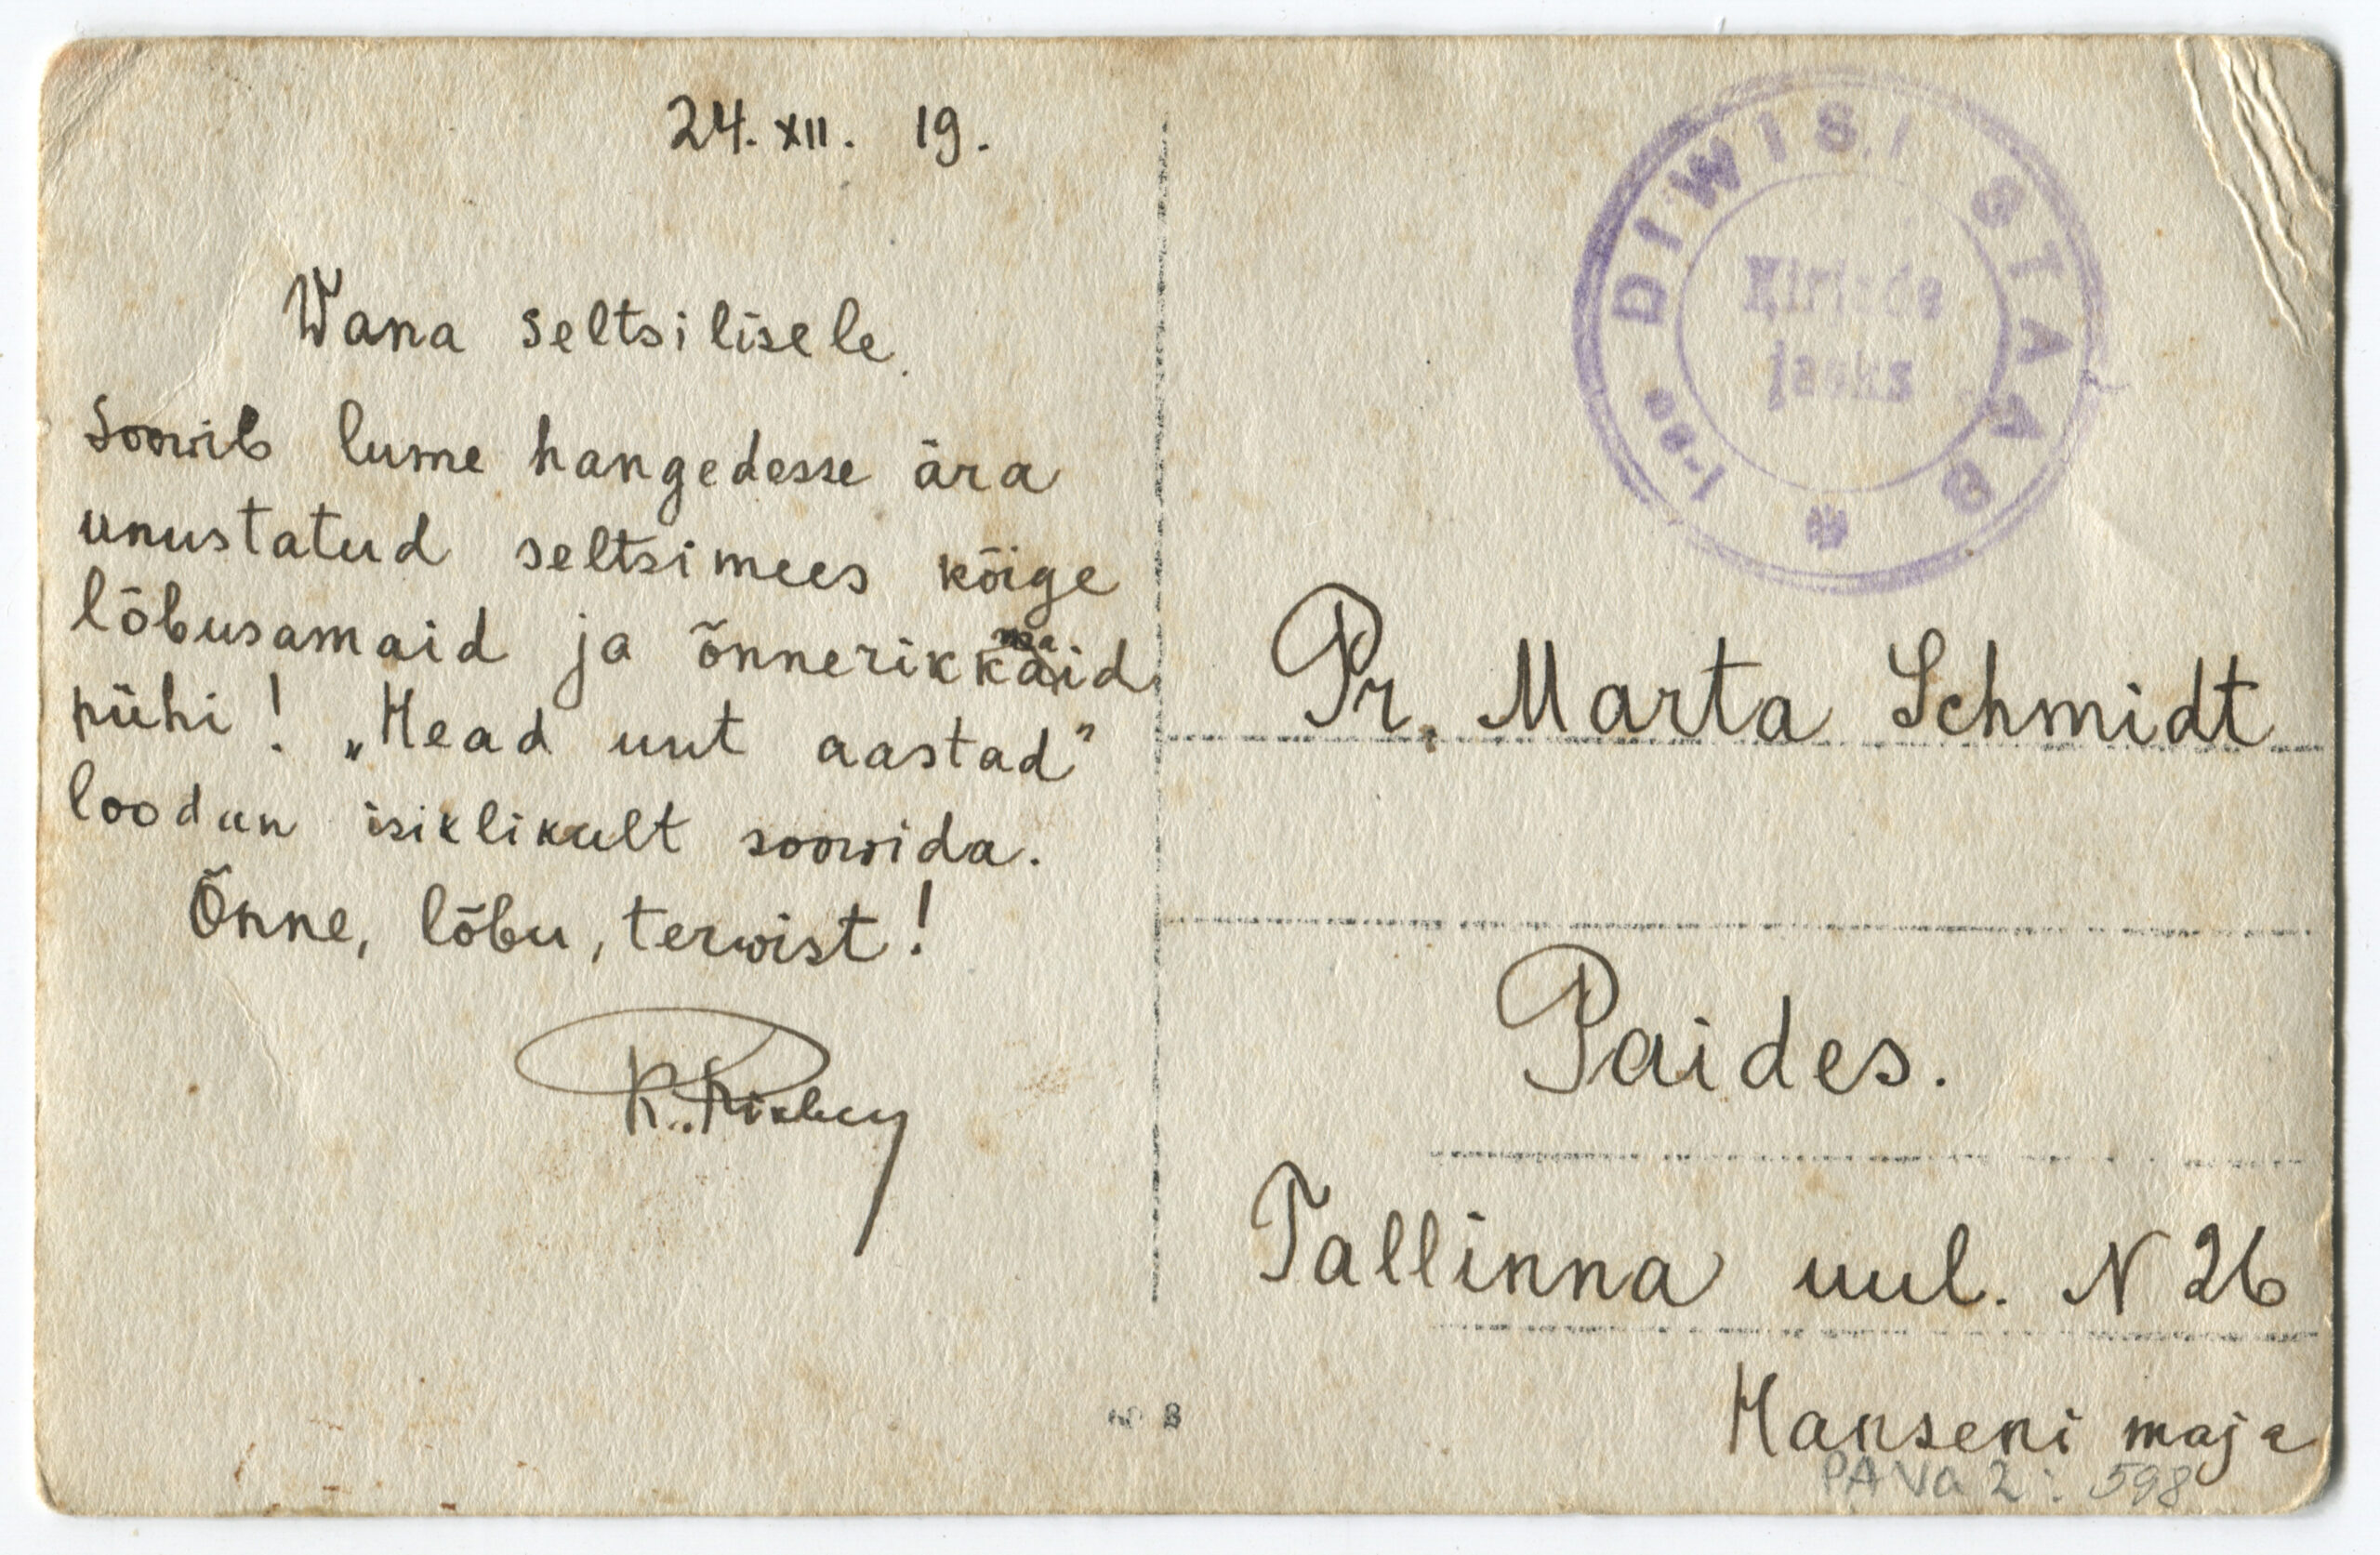 24. XII. 19.
Wana seltsilisele.
Soowib lume hangedesse ära
unustatud seltsimees kõige
lõbusamaid ja õnnerikkamaid
pühi! „Head uut aastad”
loodan isiklikult soowida.
Õnne, lõbu, terwist!
K.
I-se DIWISI STAAP
Kirjade
jaoks
Pr. Marta Schmidt
Paides.
Tallinna uul. N 26
Hanseni maja
PAVa 2: 598